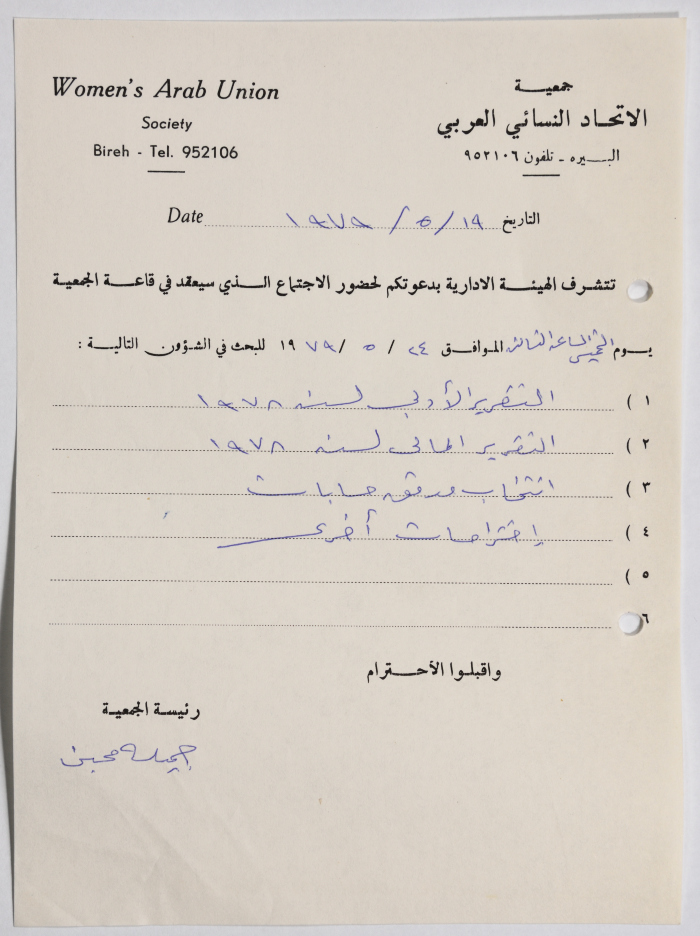 Women's Arab Union
Society
Bireh - Tel. 952106
جمعية
الاتحاد النسائي العربي
البيره - تلفون ٩٥٢١٠٦
Date ١٩/ ٥ / ١٩٧٩ التاريخ
تتشرف الهيئة الادارية بدعوتكم لحضور الاجتماع الذي سيعقد في قاعة الجمعية
يوم الخميس الساعة الثالثة الموافق ٢٤ / ٥ / ١٩٧٩ للبحث في الشؤون التالية :
١ ) التقرير الأدبي لسنه ١٩٧٨
٢ ) التقرير المالي لسنه ١٩٧٨
٣ ) انتخاب مدقق حسابات
٤ ) إقتراحات أخرى
٥ )
٦
واقبلوا الاحترام
رئيسة الجمعية
جميله